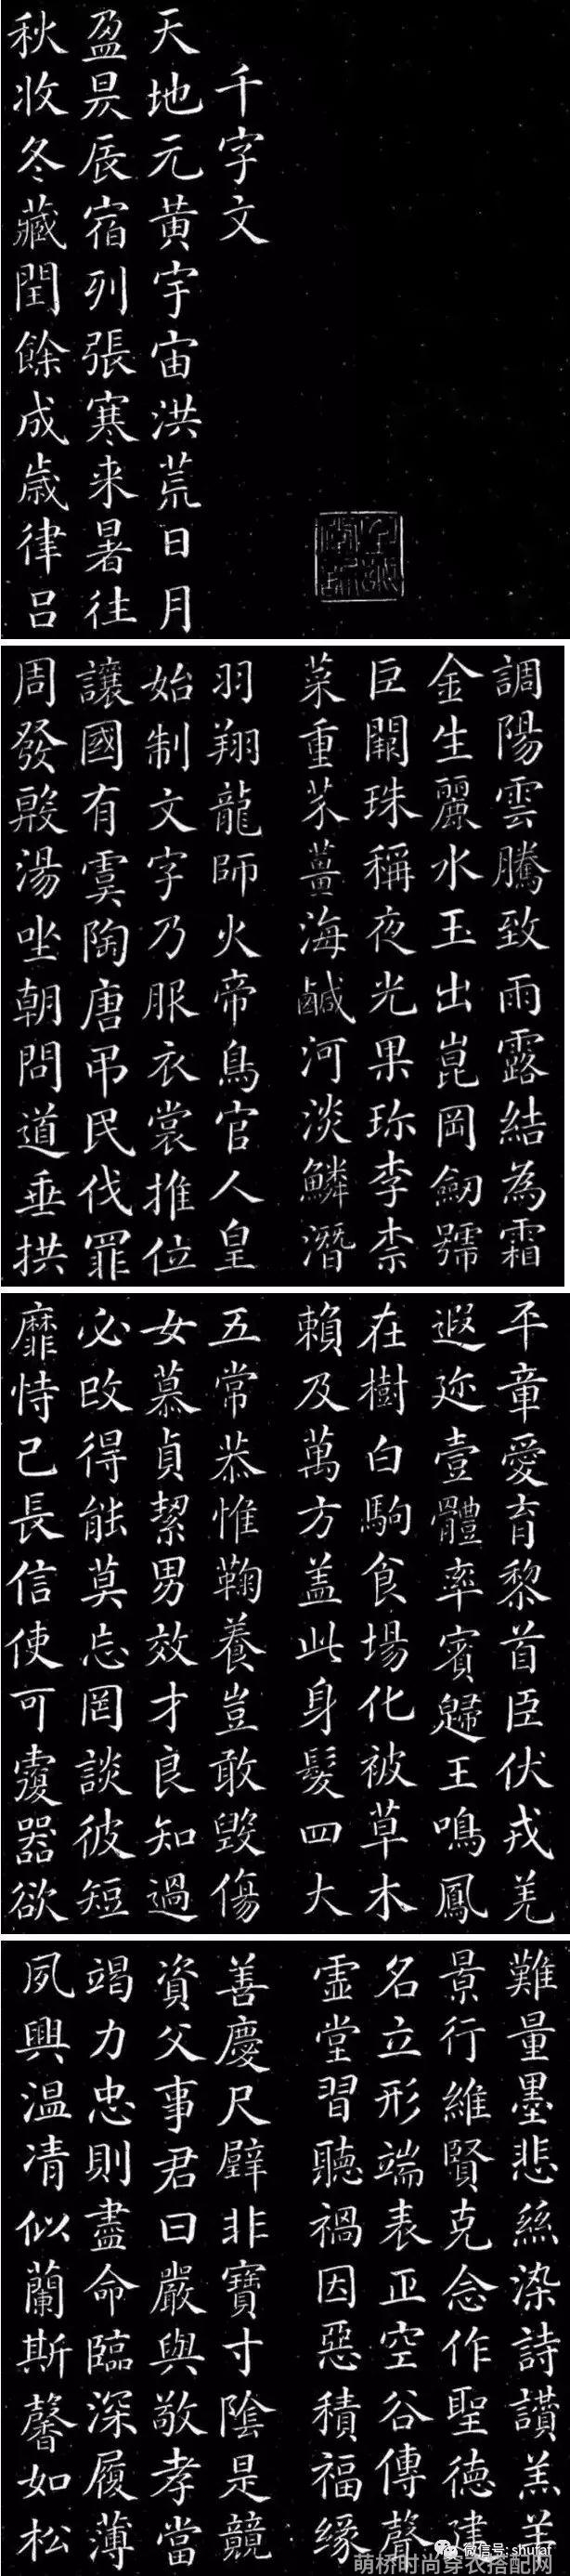 千字文
天地元黃宇宙洪荒日月
盈昃辰宿列張寒来暑往
秋收冬藏閏餘成歲律呂
調陽雲騰致雨露結為霜
金生麗水玉出崑岡劒號
巨闕珠稱夜光果珎李柰
菜重芥薑海鹹河淡鱗潛
羽翔龍師火帝鳥官人皇
始制文字乃服衣裳推位
讓國有虞陶唐吊民伐罪
周發殷湯坐朝問道垂拱
平章愛育黎首臣伏戎羌
遐迩壹體率賓歸王鳴鳳
在樹白駒食場化被草木
賴及萬方盖此身髮四大
五常恭惟鞠養豈敢毀傷
女慕貞絜男效才良知過
必改得能莫忘罔談彼短
靡恃己長信使可覆器欲
難量墨悲絲染詩讚羔羊
景行維賢克念作聖德建
名立形端表正空谷傳聲
虛堂習聽禍因惡積福緣
善慶尺璧非寶寸陰是競
資父事君曰嚴與敬孝當
竭力忠則盡命臨深履薄
夙興温凊似蘭斯馨如松
微信号: shufaf
萌桥时尚穿衣搭配网